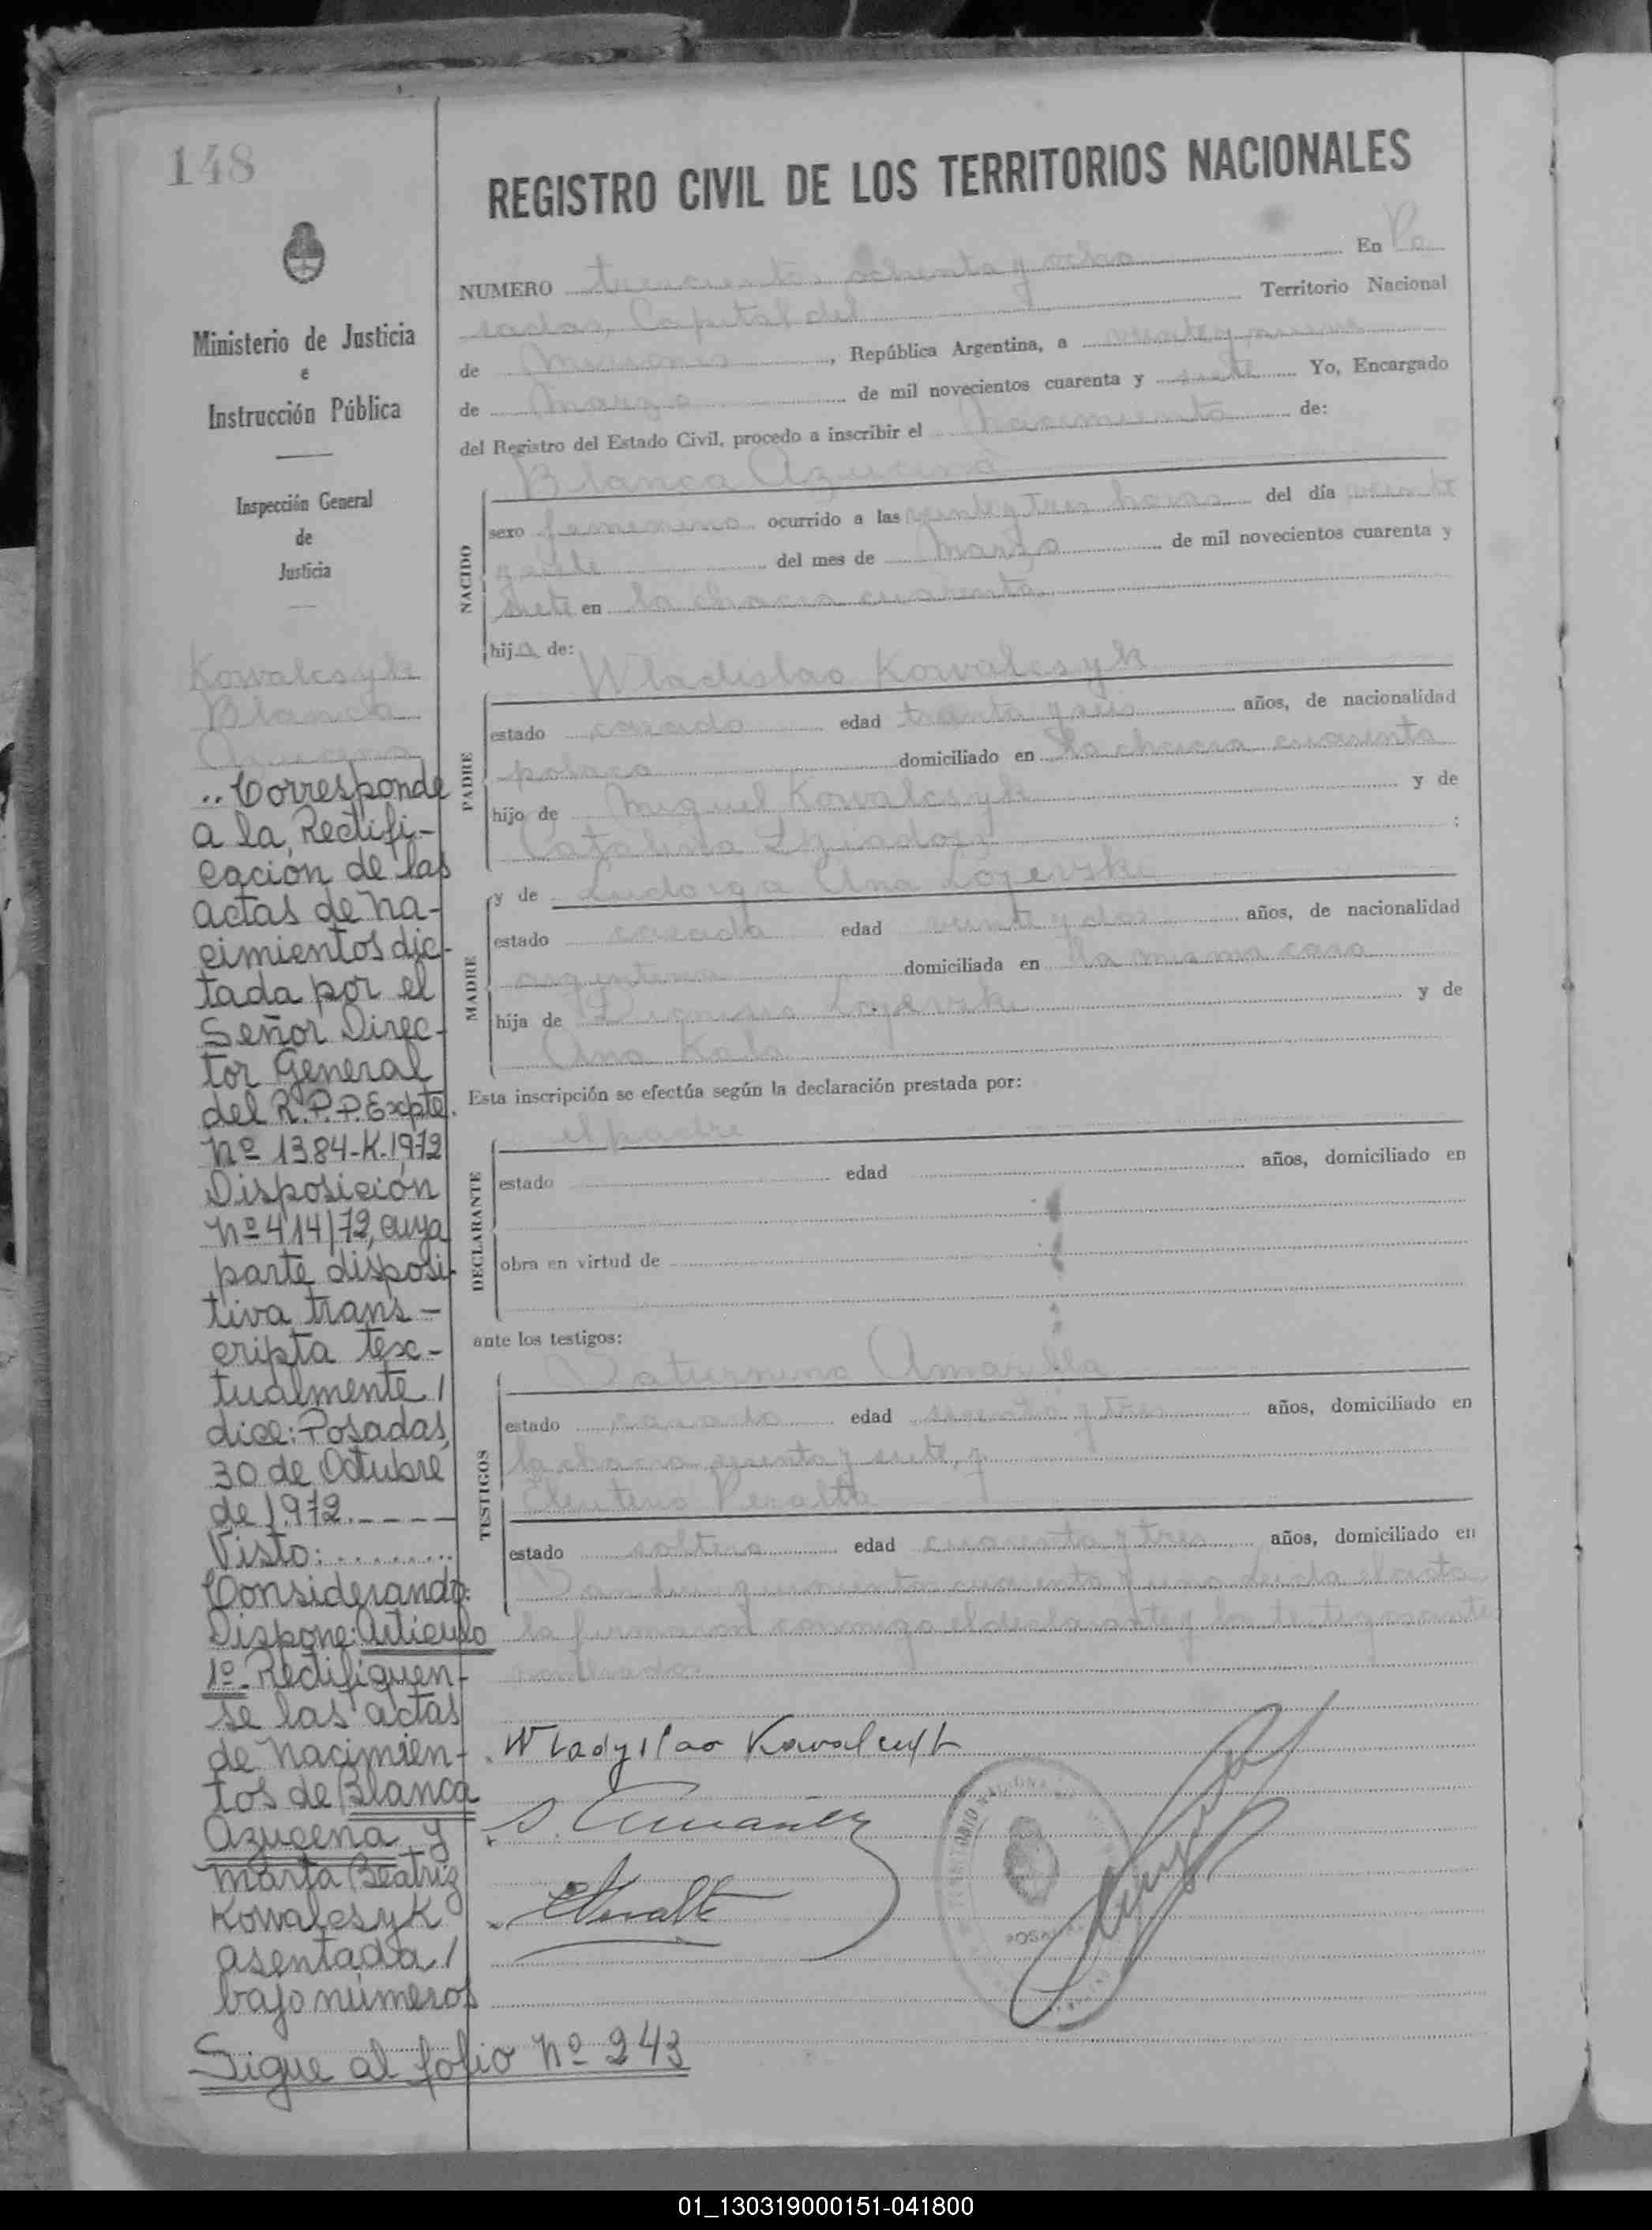 148
Ministerio de Justicia
e
Instrucción Pública
Inspección General
de
Justicia
Kowalcsyk
Blanca
Azucena
..Corresponde
a la Rectifi-
cación de las
actas de na-
cimientos dic-
tada por el
Señor Direc-
tor General
del R.P.P. Expte.
Nº 1384-K-1972
Disposición
Nº 414/72, cuya
parte disposi-
tiva trans-
cripta tex-
tualmente/
dice: Posadas,
30 de Octubre
de 1.972.----
Visto:........
Considerando:
Dispone: Artículo
1º- Rectifiquen-
se las actas
de nacimien-
tos de Blanca
Azucena y
Marta Beatriz
Kowalcsyk
asentada/
bajo números
Sigue al folio Nº 243
REGISTRO CIVIL DE LOS TERRITORIOS NACIONALES
NUMERO trescientos ochenta y ocho En Po
sadas, Capital del Territorio Nacional
de Misiones, República Argentina, a veinte y nueve
de Marzo de mil novecientos cuarenta y siete Yo, Encargado
del Registro del Estado Civil, procedo a inscribir el nacimiento de:
Blanca Azucena
NACIDO
sexo femenino ocurrido a las veinte y tres horas del día veinte
y siete del mes de Marzo de mil novecientos cuarenta y
siete en la chacra cuarenta
hija de:
Wladislao Kowalcsyk
PADRE
estado casado edad treinta y seis años, de nacionalidad
polaca domiciliado en la chacra cuarenta
hijo de Miguel Kowalcsyk y de
Catalina :
y de Ludoiga Ana Lojerski
MADRE
estado casada edad veinte y dos años, de nacionalidad
argentina domiciliada en la misma casa
hija de Dionisio Lojerski y de
Ana Kola
Esta inscripción se efectúa según la declaración prestada por:
el padre
DECLARANTE
estado edad años, domiciliado en
obra en virtud de
ante los testigos:
Saturnino Amarilla
TESTIGOS
estado casado edad sesenta y tres años, domiciliado en
la chacra sesenta y siete, y
Eleuterio Peralta
estado soltero edad cuarenta y tres años, domiciliado en
San Luis quinientos cuarenta y uno Leida el acta
la firmaron conmigo el declarante y los testigos antes
nombrados
Wladyslao Kowalcsyk